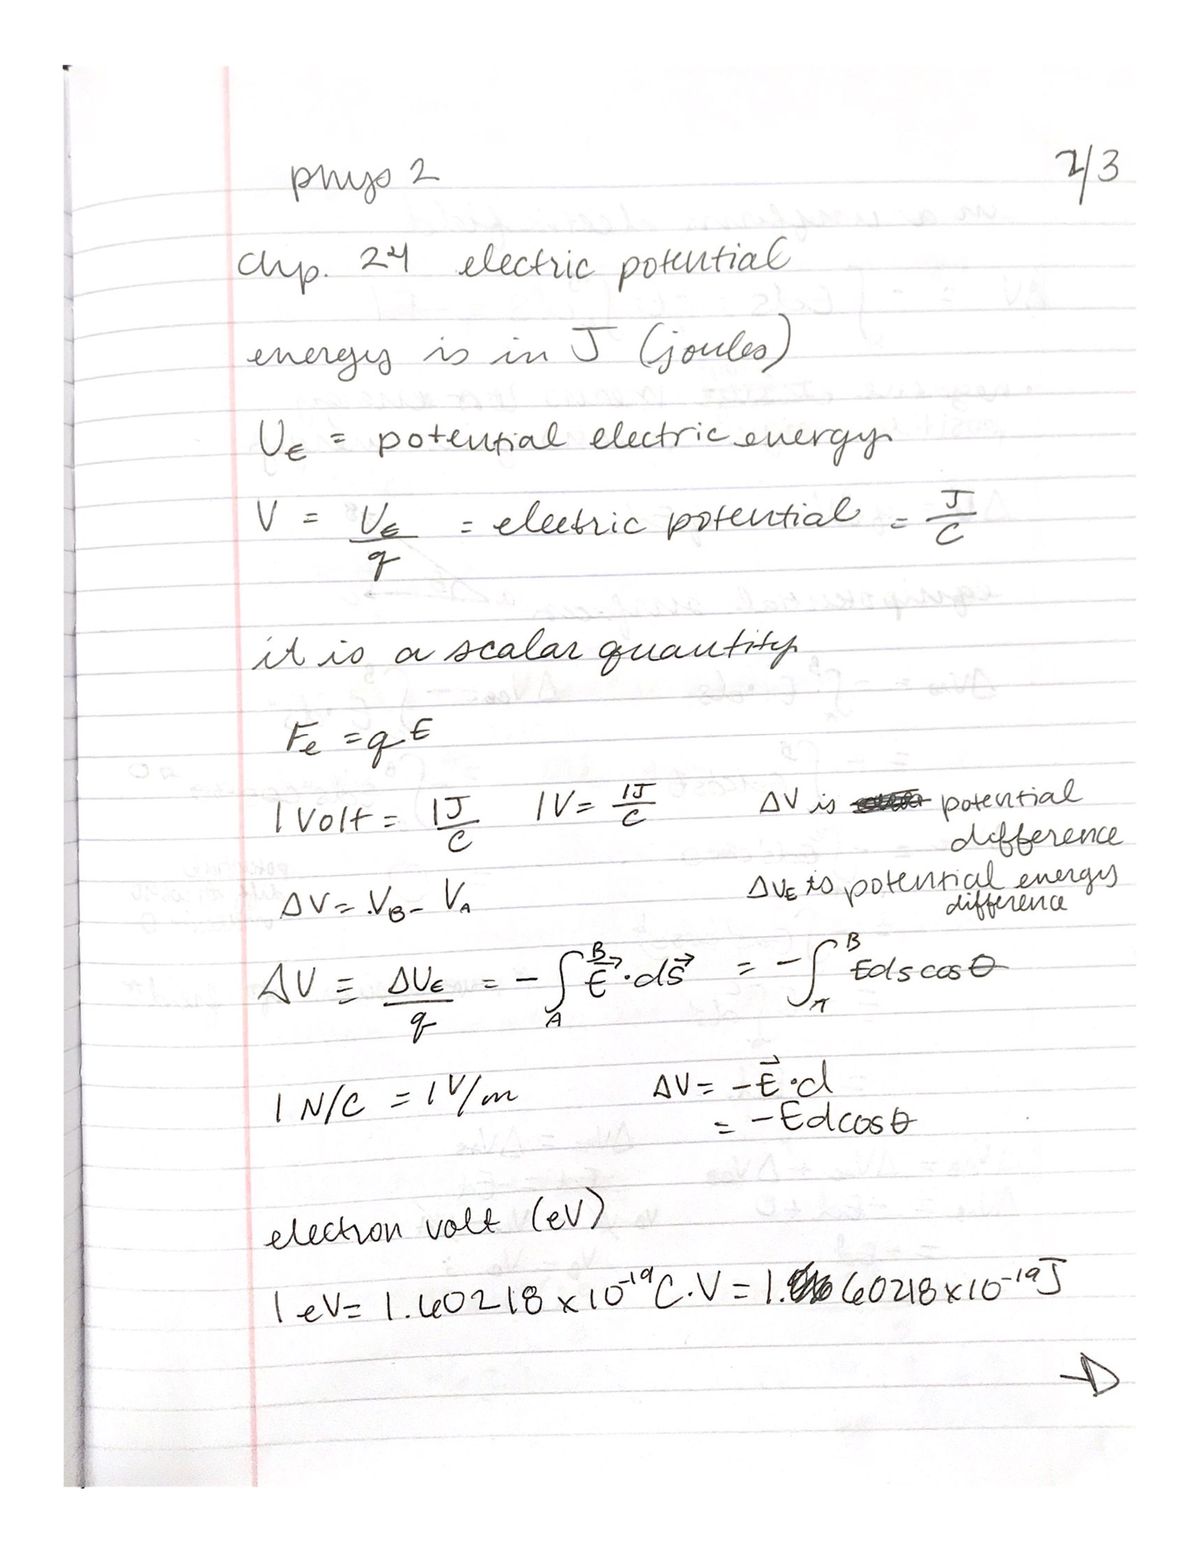 phys 2 2/3
chp. 24 electric potential
energy is in J (joules)
U_E = potential electric energy
V = U_E/q = electric potential = J/C
it is a scalar quantity
F_e = qE
1 Volt = 1J/C 1V = 1J/C ΔV is potential difference
ΔV = V_B - V_A ΔU_E is potential energy difference
ΔV ≡ ΔU_E/q = -∫_A^B E⃗·ds⃗ = -∫_A^B Eds cosθ
1 N/C = 1 V/m ΔV = -E⃗·d
= -Edcosθ
electron volt (eV)
1 eV = 1.60218 x 10^-19 C·V = 1.60218 x 10^-19 J
→